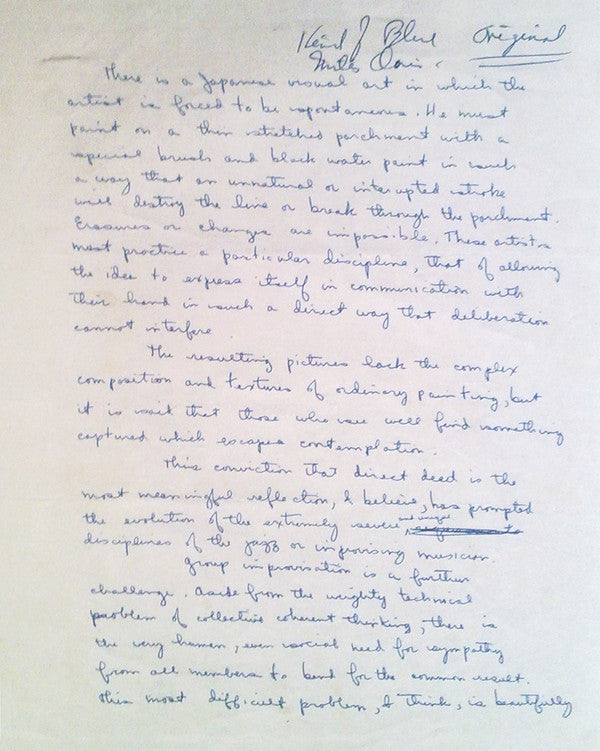 Kind of Blue Original
Miles Davis.
There is a Japanese visual art in which the
artist is forced to be spontaneous. He must
paint on a thin stretched parchment with a
special brush and black water paint in such
a way that an unnatural or interupted stroke
will destroy the line or break through the parchment.
Erasures or changes are impossible. These artists
must practice a particular discipline, that of allowing
the idea to express itself in communication with
their hand in such a direct way that deliberation
cannot interfere
The resulting pictures lack the complex
composition and textures of ordinary painting, but
it is said that those who see well find something
captured which escapes contemplation.
This conviction that direct deed is the
most meaningful reflection, I believe, has prompted
the evolution of the extremely severe and unique
disciplines of the jazz or improvising musician.
Group improvisation is a further
challenge. Aside from the weighty technical
problem of collective coherent thinking, there is
the very human, even social need for sympathy
from all members to bend for the common result.
This most difficult problem, I think, is beautifully